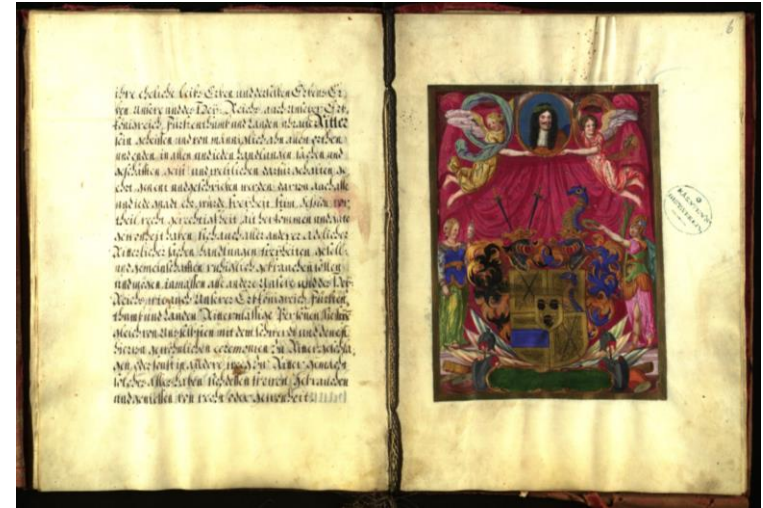 ihre eheliche leibs Erben und derselben Erbens Er-
ben Unsere und des Heÿ: Reichs auch Unserer Erb-
königreich, Fürstenthumb und Landen Ritter
sein geheissen und von männiglich an allen orthen
und enden in allen und ieden handlungen sachen und
geschäfften geist- und weltlichen darfür gehalten ge-
ehrt genent und geschrieben werden, auch alle
und iede gnad ehr würde freÿheit
theil recht gerechtigkeit alt herkommen und gute
gewonheit haben sich auch aller anderer Adelicher
Ritterlicher sachen handlungen freÿheiten gesell-
und gemeinschafften gebrauchen sollen
und mögen, inmassen alle andere Unsere und des Heÿ:
Reichs wie auch Unserer Erbkönigreich Fürsten-
thumb und Landen Rittermässige Personen
gleich von Uns selbsten mit dem schwerdt und denen
hierzu gewöhnlichen ceremonien zu Ritter geschla-
gen oder sonst in andere weeg zu Ritter gemacht
solches alles haben, sich dessen freuen, gebrauchen
und geniessen von recht oder gewonheit
6